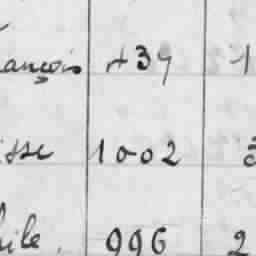 ançois 439 1
isse 1002
ile. 996 2